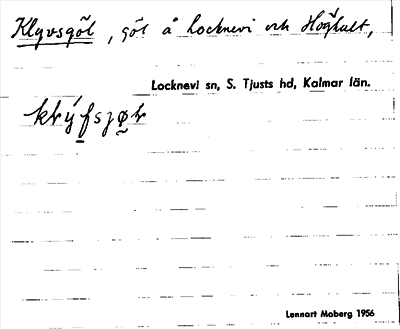 Klyvsgöl, göl å Locknevi och Höghult,
Locknevi sn, S. Tjusts hd, Kalmar län.
Lennart Moberg 1956